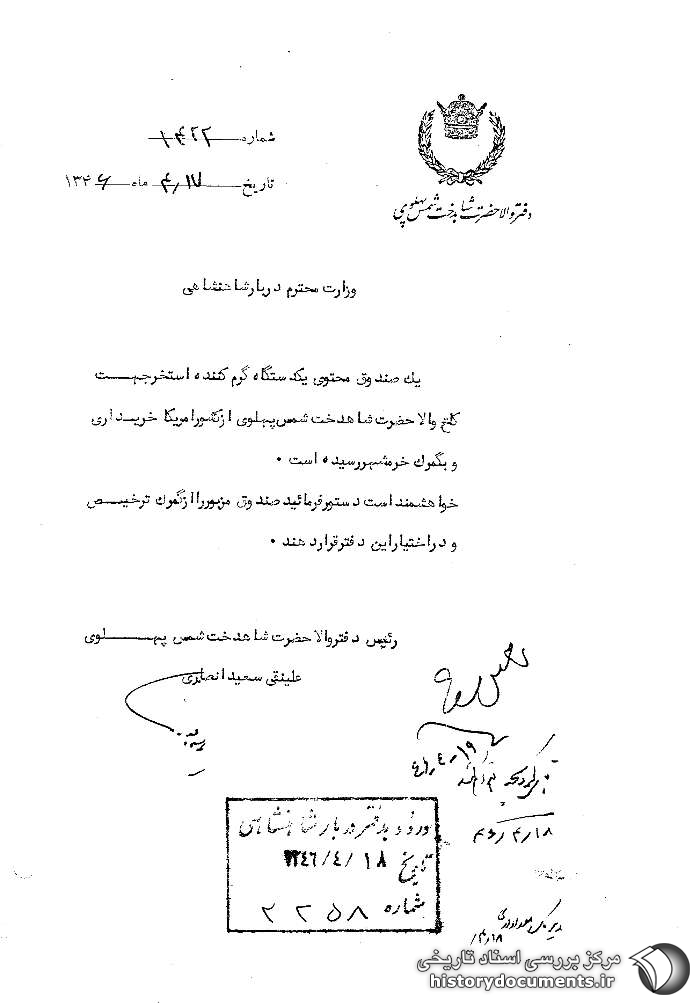 شماره ۱۴۲۲
تاریخ ۴٫۱۷ ماه ۱۳۴۶
دفتر والاحضرت شاهدخت شمس پهلوی
وزارت محترم دربار شاهنشاهی
یك صندوق محتوی یكدستگاه گرم كننده استخر جهت
كاخ والاحضرت شاهدخت شمس پهلوی از كشور امریكا خریداری
و بگمرك خرمشهر رسیده است ۰
خواهشمند است دستور فرمائید صندوق مزبور را از گمرك ترخیص
و در اختیار این دفتر قرار دهند ۰
رئیس دفتر والاحضرت شاهدخت شمس پهلوی
علینقی سعید انصاری
۴۶٫۴٫۱۹
۴۶٫۴٫۱۸
ورود بدفتر دربار شاهنشاهی
تاریخ ۱۳۴۶/۴/۱۸
شماره ۲۲۵۸
۴٫۱۸
مرکز بررسی اسناد تاریخی
historydocuments.ir